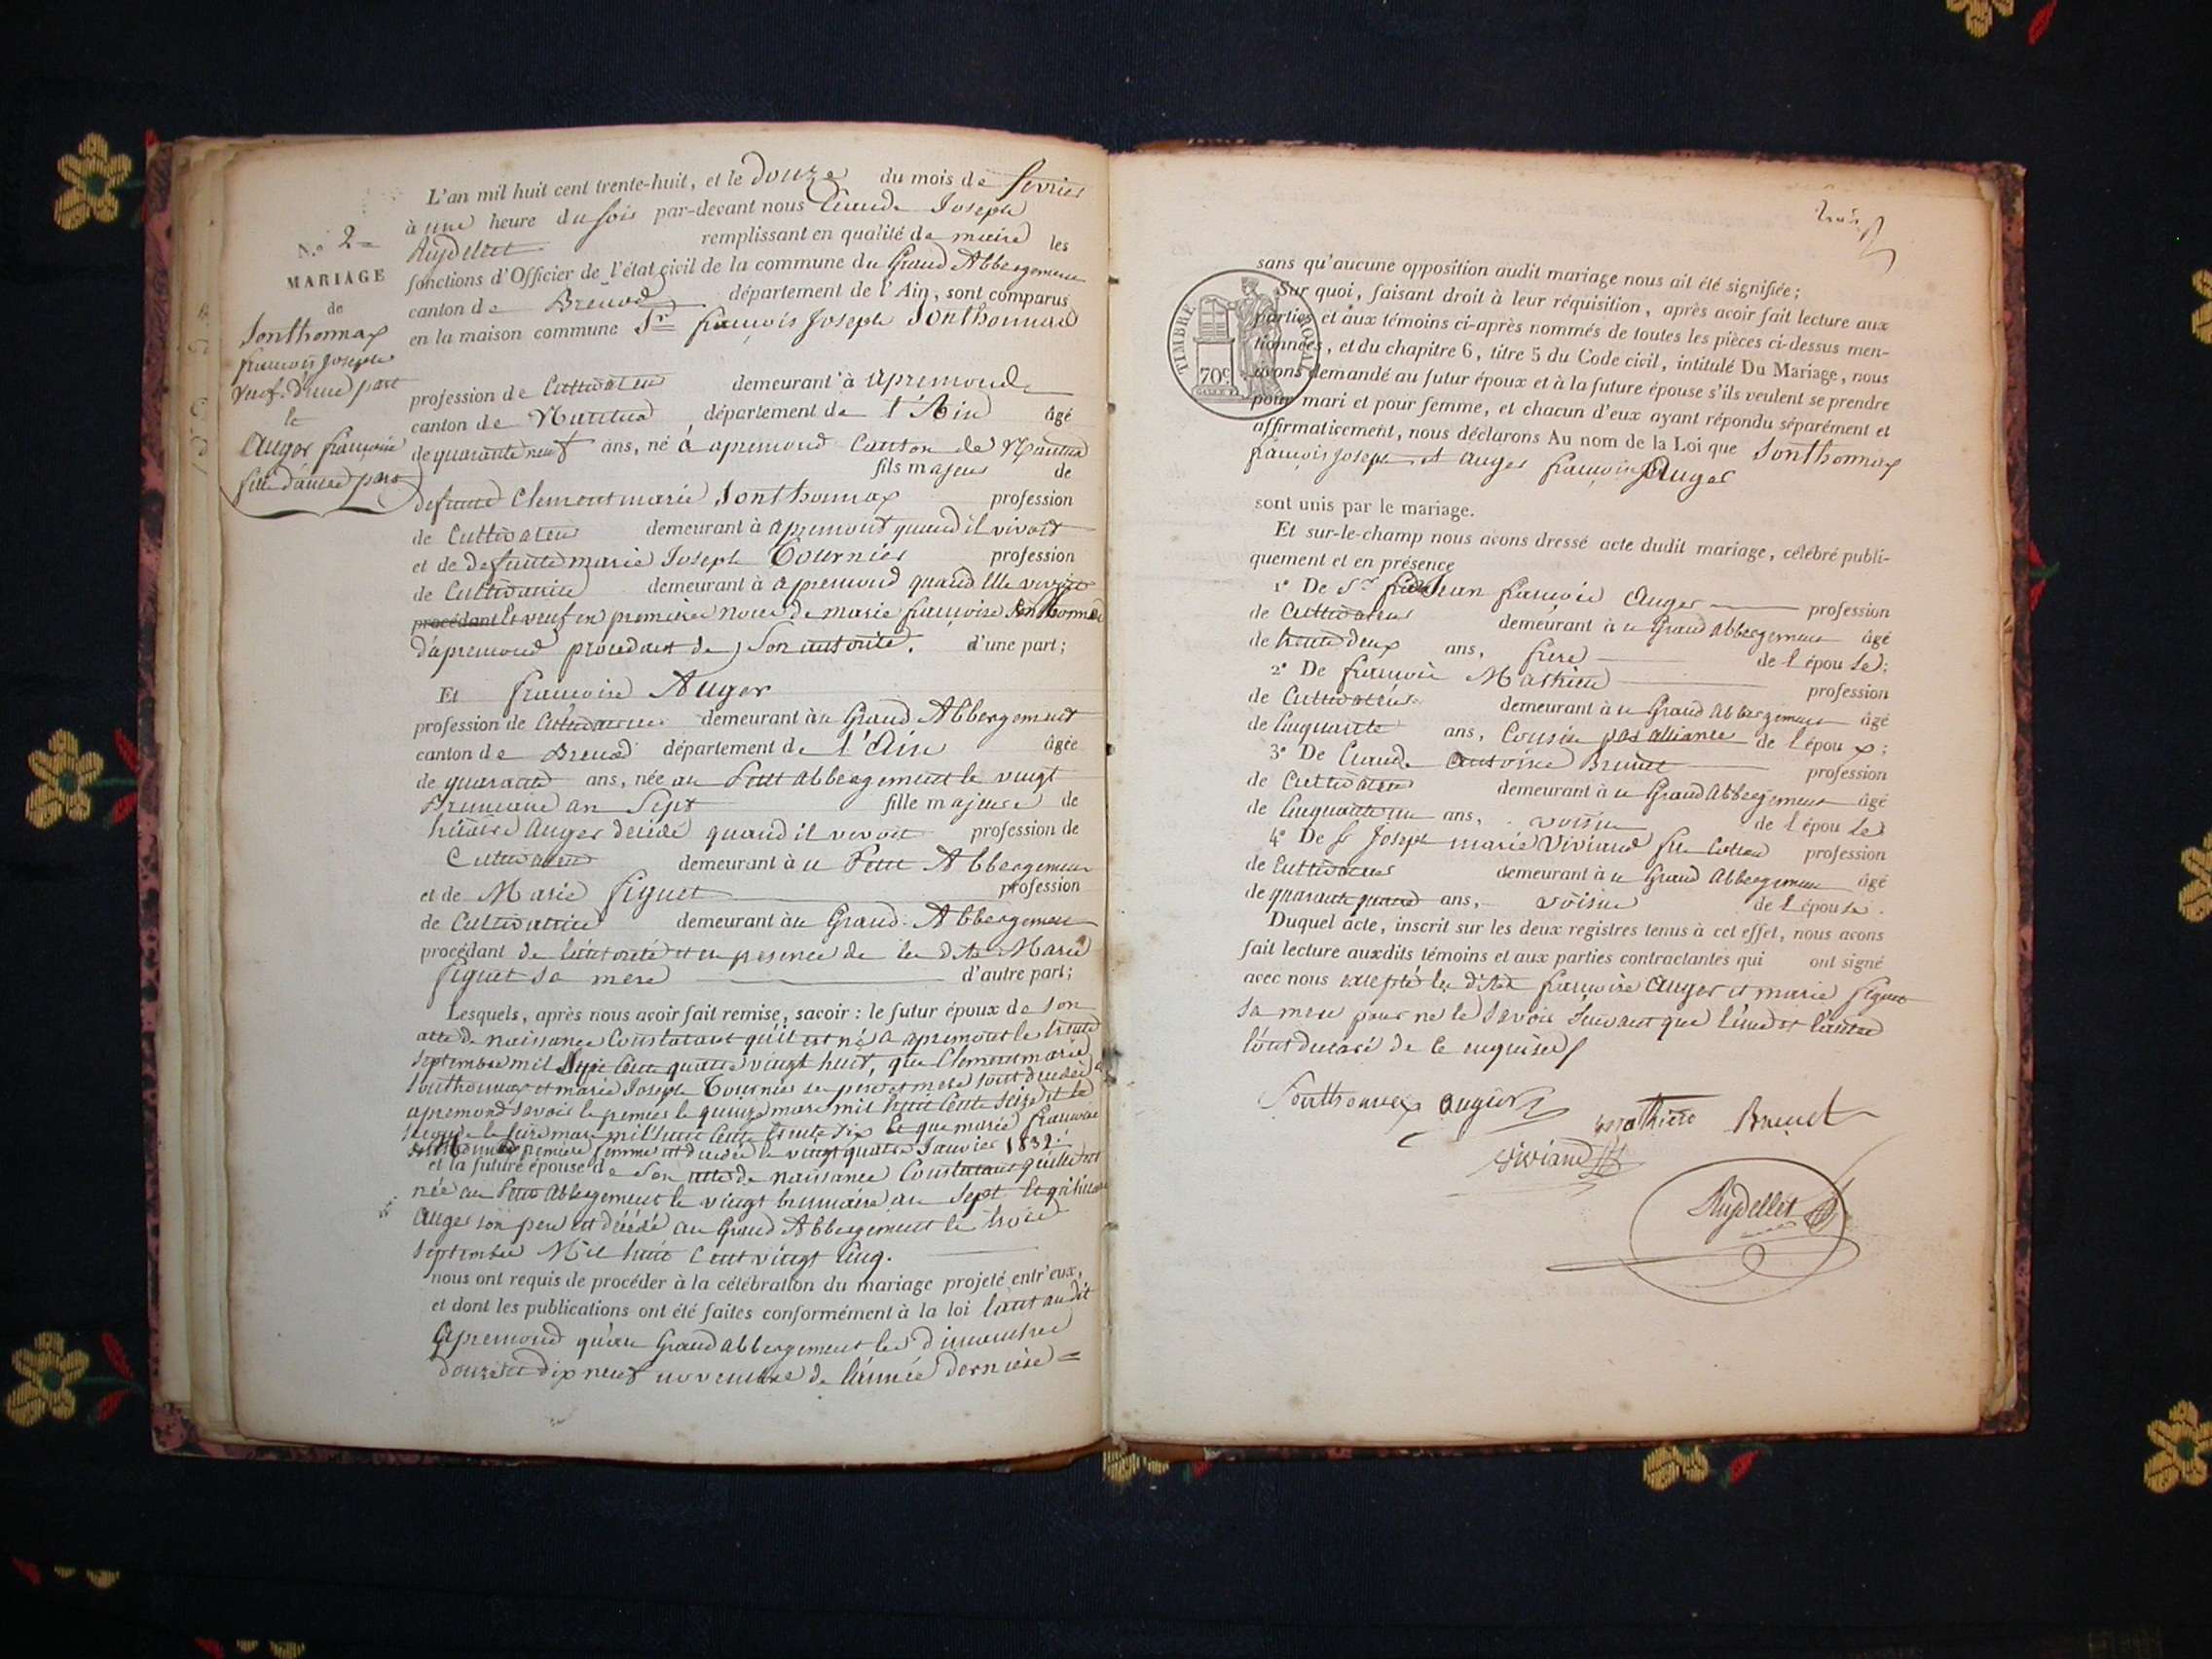 N.º 2
MARIAGE
de
Sonthonnax
françois Joseph
veuf d'une part
et
Auger françoise
fille d'autre part
L'an mil huit cent trente-huit, et le douze du mois de fevrier
à une heure du soir par-devant nous Claude Joseph
Aujdellet remplissant en qualité de maire les
fonctions d'Officier de l'état civil de la commune du Grand Abbergement
canton de Brenod département de l'Ain, sont comparus
en la maison commune Sr françois Joseph Sonthonnax
profession de Cultivateur demeurant à apremond
canton de Nantua département de l'Ain âgé
de quarante neuf ans, né à apremond Canton de Nantua
fils majeur de
defunt Clement marie Sonthonnax profession
de Cultivateur demeurant à apremont quand il vivoit
et de defunte marie Joseph Tournier profession
de Cultivatrice demeurant à apremond quand Elle vivoit
procédant et veuf en premiere noce de marie françoise Sonthonnax
d'apremond procedant de son autorité. d'une part;
Et françoise Auger
profession de Cultivatrice demeurant au Grand Abbergement
canton de Brenod département de l'Ain âgée
de quarante ans, née au Petit abbergement le vingt
Brumaire an Sept fille majeure de
hilaire Auger decédé quand il vivoit profession de
Cultivateur demeurant au Petit Abbergement
et de Marie Piquet profession
de Cultivatrice demeurant au Grand Abbergement
procédant de l'autorité et en presence de la dite Marie
Piquet sa mere d'autre part;
Lesquels, après nous avoir fait remise, savoir: le futur époux de son
acte de naissance Constatant qu'il est né a apremont le trente
septembre mil Sept Cent quatre vingt huit, que Clement marie
Sonthonnax et marie Joseph Tournier se pere et mere sont decedé a
apremond savoir le premier le quinze mars mil huit Cent seize et la
seconde le seize mars mil huit Cent trente six Et que marie françoise
Sonthonnax premiere femme est decedée le vingt quatre Janvier 1832.
et la future épouse de Son acte de naissance Constatant quelle est
née au Petit Abbergement le vingt brumaire an Sept Et qu'hilaire
Auger son pere est décédé au Grand Abbergement le trois
septembre Mil huit Cent vingt Cinq.
nous ont requis de procéder à la célébration du mariage projeté entr'eux,
et dont les publications ont été faites conformément à la loi tant audit
Apremond qu'au Grand abbergement les dimanches
douze et dix neuf novembre de l'année dernière =
sans qu'aucune opposition audit mariage nous ait été signifiée;
TIMBRE ROYAL
70 c.
Sur quoi, faisant droit à leur réquisition, après avoir fait lecture aux
parties et aux témoins ci-après nommés de toutes les pièces ci-dessus men-
tionnées, et du chapitre 6, titre 5 du Code civil, intitulé Du Mariage, nous
avons demandé au futur époux et à la future épouse s'ils veulent se prendre
pour mari et pour femme, et chacun d'eux ayant répondu séparément et
affirmativement, nous déclarons Au nom de la Loi que Sonthonnax
françois Joseph et Auger françoise Auger
sont unis par le mariage.
Et sur-le-champ nous avons dressé acte dudit mariage, célébré publi-
quement et en présence
1º De Sr Jean françois Auger profession
de Cultivateur demeurant au Grand abbergement âgé
de trente deux ans, frere de l'épouse;
2º De françois Mathieu profession
de Cultivateur demeurant au Grand abbergement âgé
de Cinquante ans, Cousin par alliance de l'époux;
3º De Claude antoine Brunet profession
de Cultivateur demeurant au Grand Abbergement âgé
de Cinquante un ans, voisin de l'épouse
4º De Joseph marie Viviand profession
de Cultivateur demeurant au Grand Abbergement âgé
de quarante quatre ans, voisin de l'épouse.
Duquel acte, inscrit sur les deux registres tenus à cet effet, nous avons
fait lecture auxdits témoins et aux parties contractantes qui ont signé
avec nous excepté la dite françoise Auger et marie Piquet
sa mere pour ne le Savoir Suivant que l'une et l'autre
l'ont declaré de ce enquises
Sonthonnax Augier Mathieu Brunet
Viviand
Aujdellet